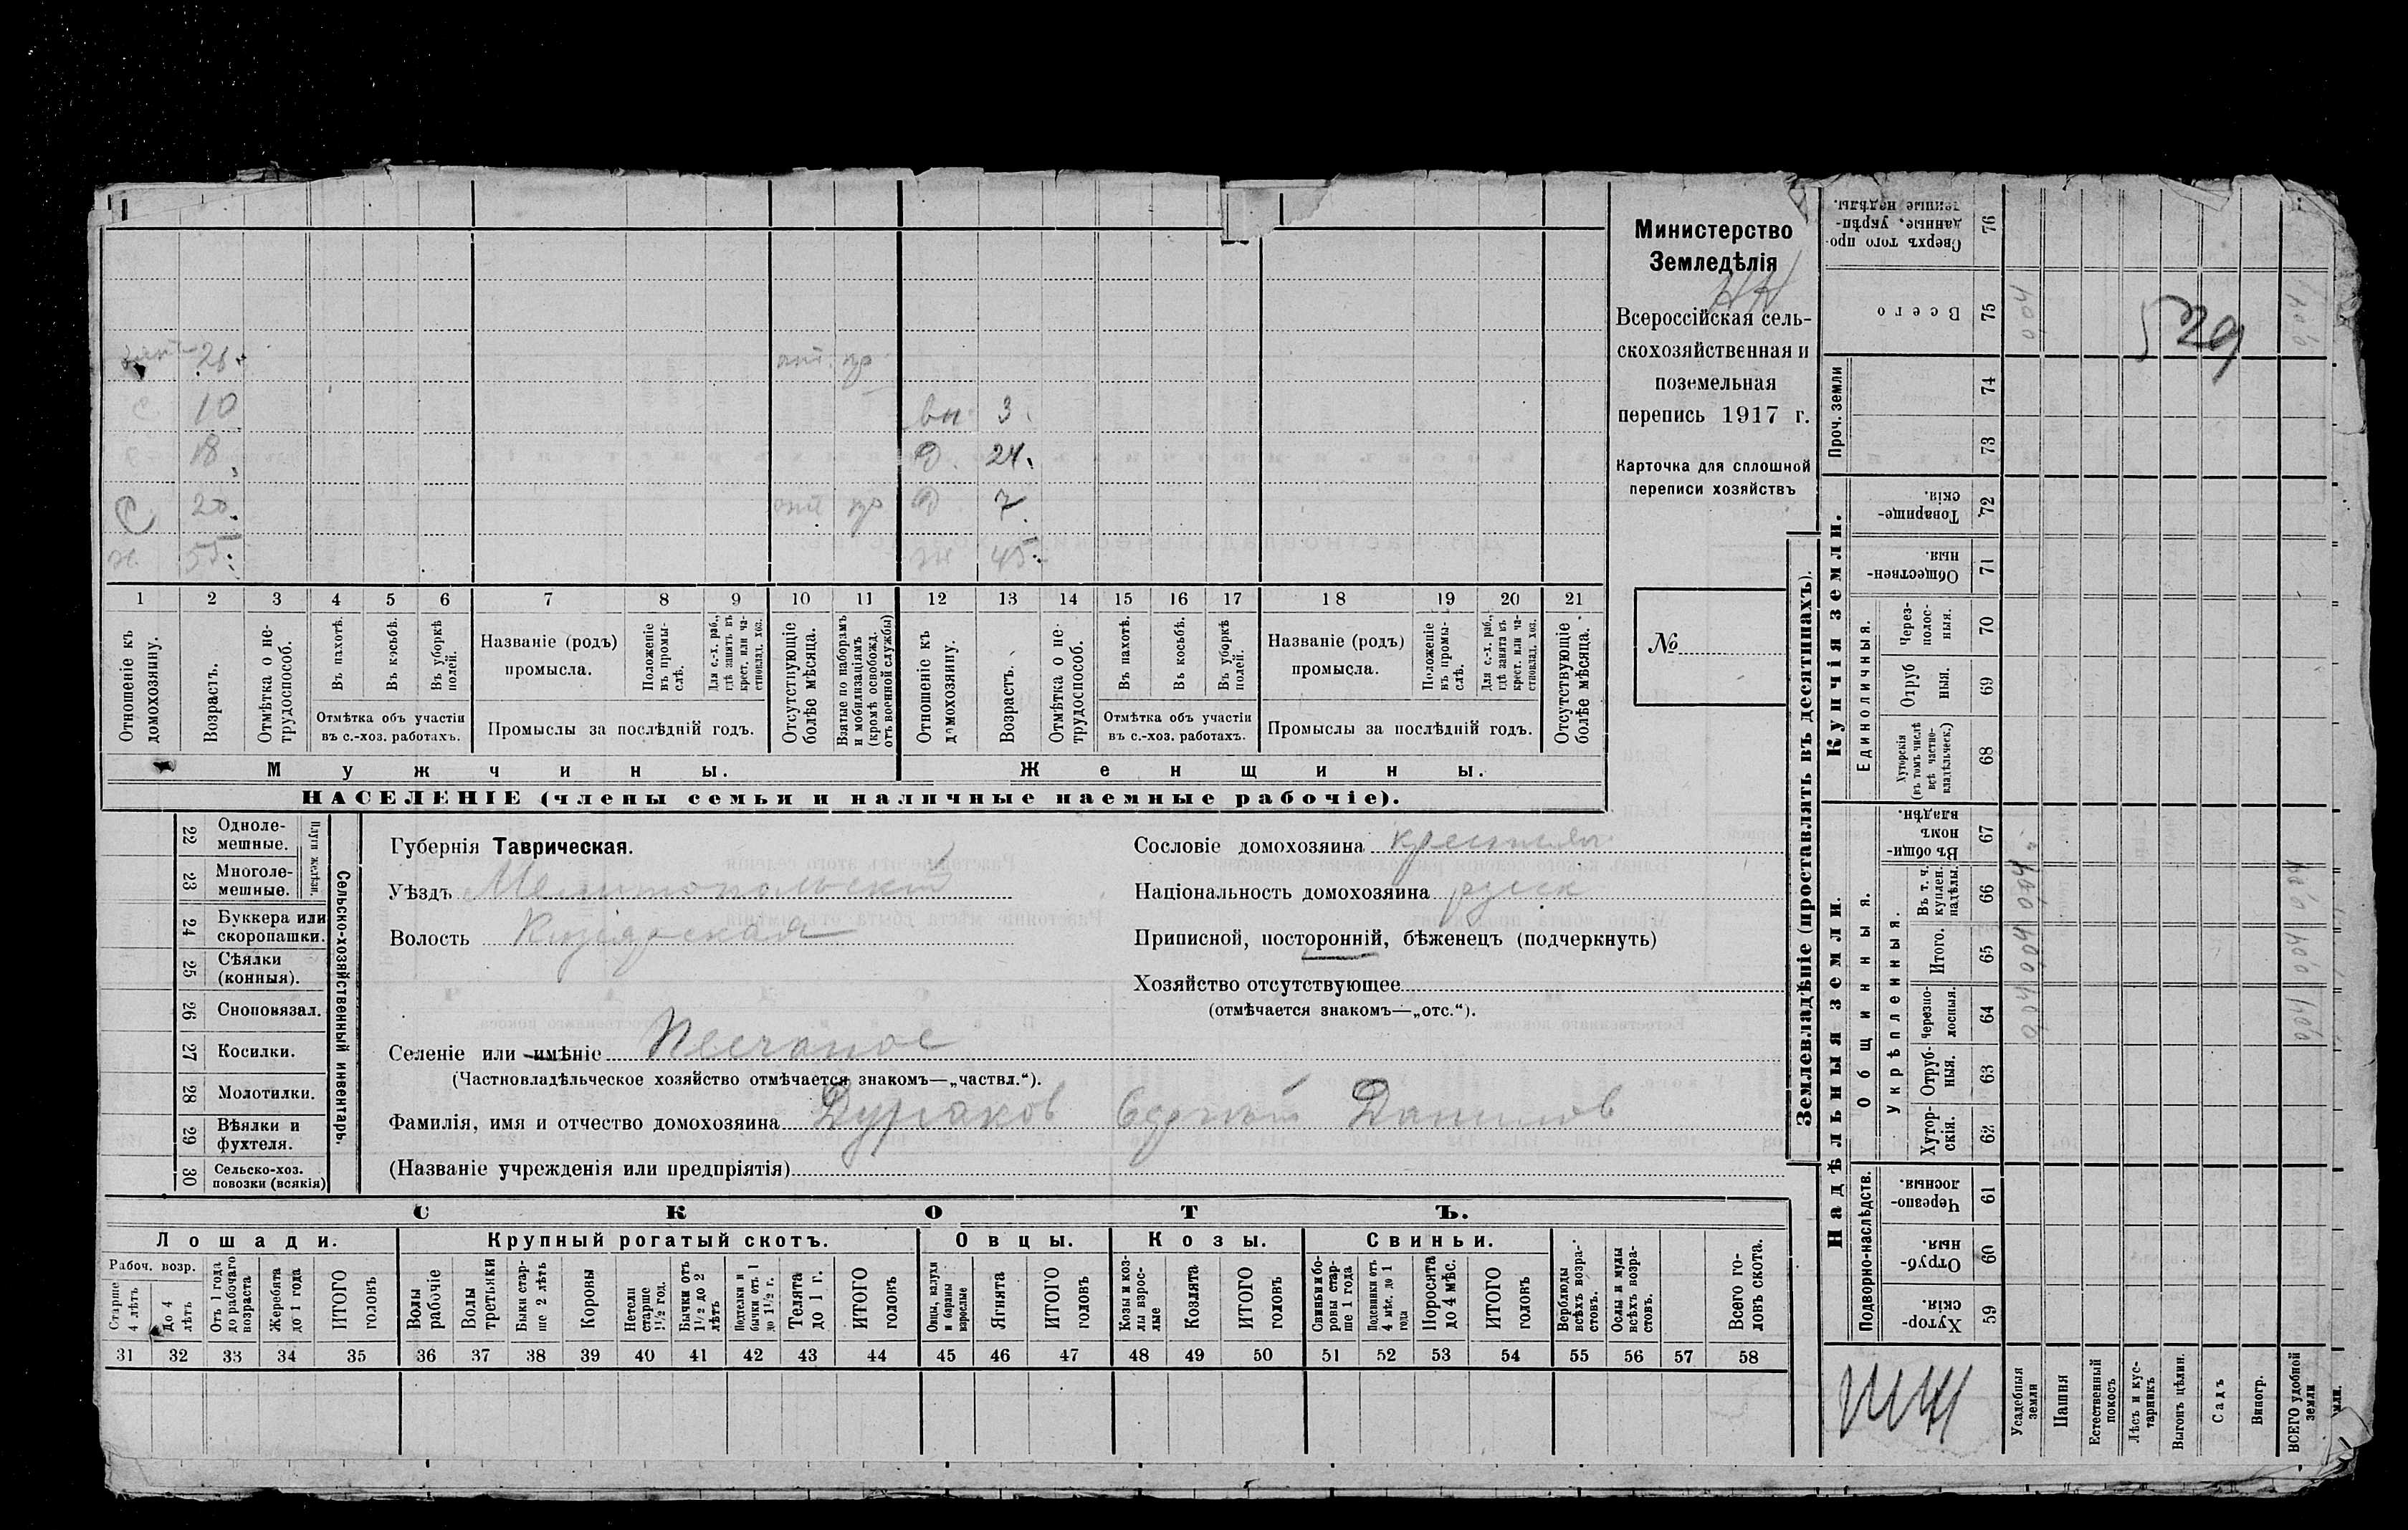 Министерство
Земледѣлія
Всероссійская сель-
скохозяйственная и
поземельная
перепись 1917 г.
Карточка для сплошной
переписи хозяйствъ
№
21.
10
18
С 20.
55.
вн. 3.
Д. 24.
Д 7.
ж 45.
1 2 3 4 5 6 7 8 9 10 11 12 13 14 15 16 17 18 19 20 21
Отношеніе къ домохозяину.
Возрастъ.
Отмѣтка о не-трудоспособ.
Въ пахотѣ.
Въ косьбѣ.
Въ уборкѣ полей.
Отмѣтка объ участіи
въ с.-хоз. работахъ.
Названіе (родъ)
промысла.
Положеніе въ промы-слѣ.
Для с.-х. раб., гдѣ занятъ въ крест. или ча-стновлад. хоз.
Промыслы за послѣдній годъ.
Отсутствующіе болѣе мѣсяца.
Взятые по наборамъ и мобилизаціямъ (кромѣ освобожд. отъ военной службы)
Отношеніе къ домохозяину.
Возрастъ.
Отмѣтка о не-трудоспособ.
Въ пахотѣ.
Въ косьбѣ.
Въ уборкѣ полей.
Отмѣтка объ участіи
въ с.-хоз. работахъ.
Названіе (родъ)
промысла.
Положеніе въ промы-слѣ.
Для с.-х. раб., гдѣ занята въ крест. или ча-стновлад. хоз.
Промыслы за послѣдній годъ.
Отсутствующіе болѣе мѣсяца.
Мужчины.
Женщины.
НАСЕЛЕНІЕ (члены семьи и наличные наемные рабочіе).
Сельско-хозяйственный инвентарь.
Плуги желѣзн.
22 Одноле-мешные.
23 Многоле-мешные.
24 Буккера или скоропашки.
25 Сѣялки (конныя).
26 Сноповязал.
27 Косилки.
28 Молотилки.
29 Вѣялки и фухтеля.
30 Сельско-хоз. повозки (всякія)
Губернія Таврическая.
Уѣздъ Мелитопольскій
Волость
Селеніе или имѣніе Песчаное
(Частновладѣльческое хозяйство отмѣчается знакомъ—„частвл.“).
Фамилія, имя и отчество домохозяина Данилов
(Названіе учрежденія или предпріятія)
Сословіе домохозяина крестьян
Національность домохозяина русск
Приписной, посторонній, бѣженецъ (подчеркнуть)
Хозяйство отсутствующее
(отмѣчается знакомъ—„отс.“).
СКОТЪ.
Лошади.
Рабоч. возр.
Старше 4 лѣтъ
До 4 лѣтъ
Отъ 1 года до рабочаго возраста
Жеребята до 1 года
ИТОГО головъ
Крупный рогатый скотъ.
Волы рабочіе
Волы третьяки
Быки стар-ше 2 лѣтъ
Коровы
Нетели старше 1½ год.
Бычки отъ 1½ до 2 лѣтъ
Подтелки и бычки отъ 1 до 1½ г.
Телята до 1 г.
ИТОГО головъ
Овцы.
Овцы, валухи и бараны взрослые
Ягнята
ИТОГО головъ
Козы.
Козы и коз-лы взрос-лые
Козлята
ИТОГО головъ
Свиньи.
Свиньи и бо-ровы стар-ше 1 года
Подсвинки отъ 4 мѣс. до 1 года
Поросята до 4 мѣс.
ИТОГО головъ
Верблюды всѣхъ возра-стовъ.
Ослы и мулы всѣхъ возра-стовъ.
Всего го-ловъ скота.
31 32 33 34 35 36 37 38 39 40 41 42 43 44 45 46 47 48 49 50 51 52 53 54 55 56 57 58
Землевладѣніе (проставлять въ десятинахъ).
Надѣльныя земли.
Подворно-наслѣдств.
59 Хутор-скія.
60 Отруб-ныя.
61 Черезпо-лосныя.
Общинныя.
Укрѣпленныя.
62 Хутор-скія.
63 Отруб-ныя.
64 Черезпо-лосныя.
65 Итого.
66 Въ т. ч. куплен. надѣлы.
67 Въ общи-номъ владѣн.
Купчія земли.
Единоличныя.
68 Хуторскія (въ томъ числѣ всѣ частно-владѣльческ.)
69 Отруб ныя.
70 Через-полос-ныя.
71 Обществен-ныя.
72 Товарище-скія.
Проч. земли
73
74
75 Всего
76 Сверхъ того про-данные, укрѣп-ленные надѣлы.
Усадебныя земли
Пашня
Естественный покосъ
Лѣсъ и кус-тарникъ
Выгонъ цѣлин.
Садъ
Виногр.
ВСЕГО удобной земли
529